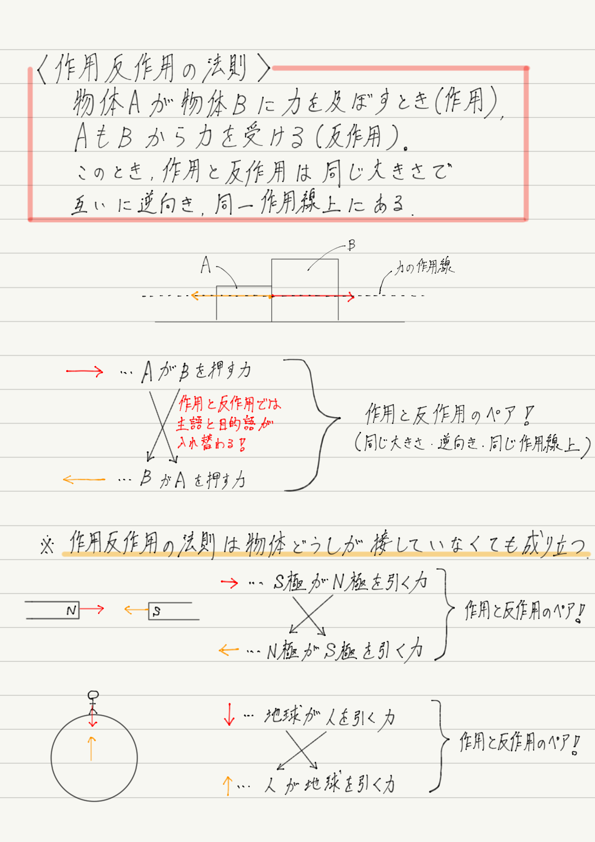 〈作用反作用の法則〉
物体Aが物体Bに力を及ぼすとき(作用),
AもBから力を受ける(反作用)。
このとき,作用と反作用は同じ大きさで
互いに逆向き,同一作用線上にある.
A
B
力の作用線
→ … AがBを押す力
作用と反作用では
主語と目的語が
入れ替わる!
← … BがAを押す力
作用と反作用のペア!
(同じ大きさ・逆向き・同じ作用線上)
※ 作用反作用の法則は物体どうしが接していなくても成り立つ.
N
S
→ … S極がN極を引く力
← … N極がS極を引く力
作用と反作用のペア!
↓ … 地球が人を引く力
↑ … 人が地球を引く力
作用と反作用のペア!